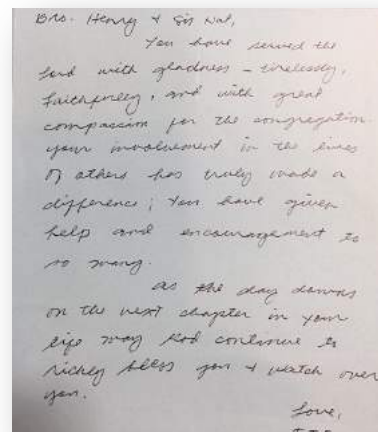 Bro. Henry & Sis Nat,
You have served the
Lord with gladness - tirelessly,
faithfully, and with great
compassion for the congregation.
Your involvement in the lives
of others has truly made a
difference; You have given
help and encouragement to
so many.
As the day dawns
on the next chapter in your
life may God continue to
richly bless you & watch over
you.
Love,